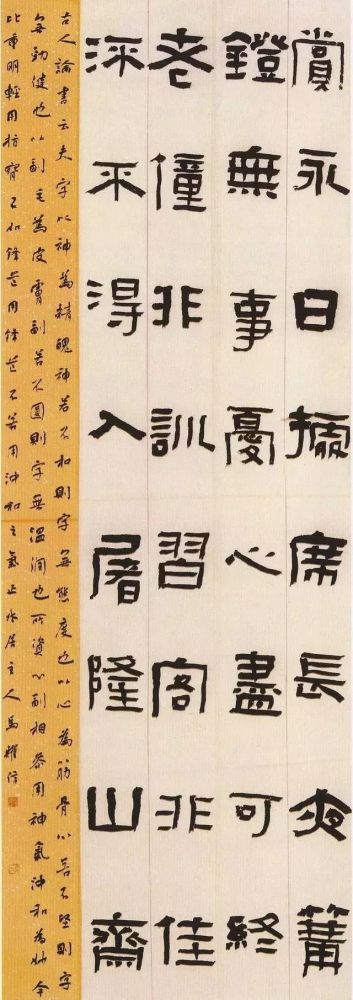 賞永日據席長夜篝
鐙無事憂心盡可終
老僮非訓習客非佳
流不得入屠隆山齋
古人論書云夫字以神為精魄神若不和則字無態度也以心為筋骨心若不堅則字
無勁健也以副毛為皮膚副若不圓則字無溫潤也所資心副相參用神氣沖和為妙今
比重明輕用指腕不如鋒芒用鋒芒不若用沖和之氣止水居主人馬